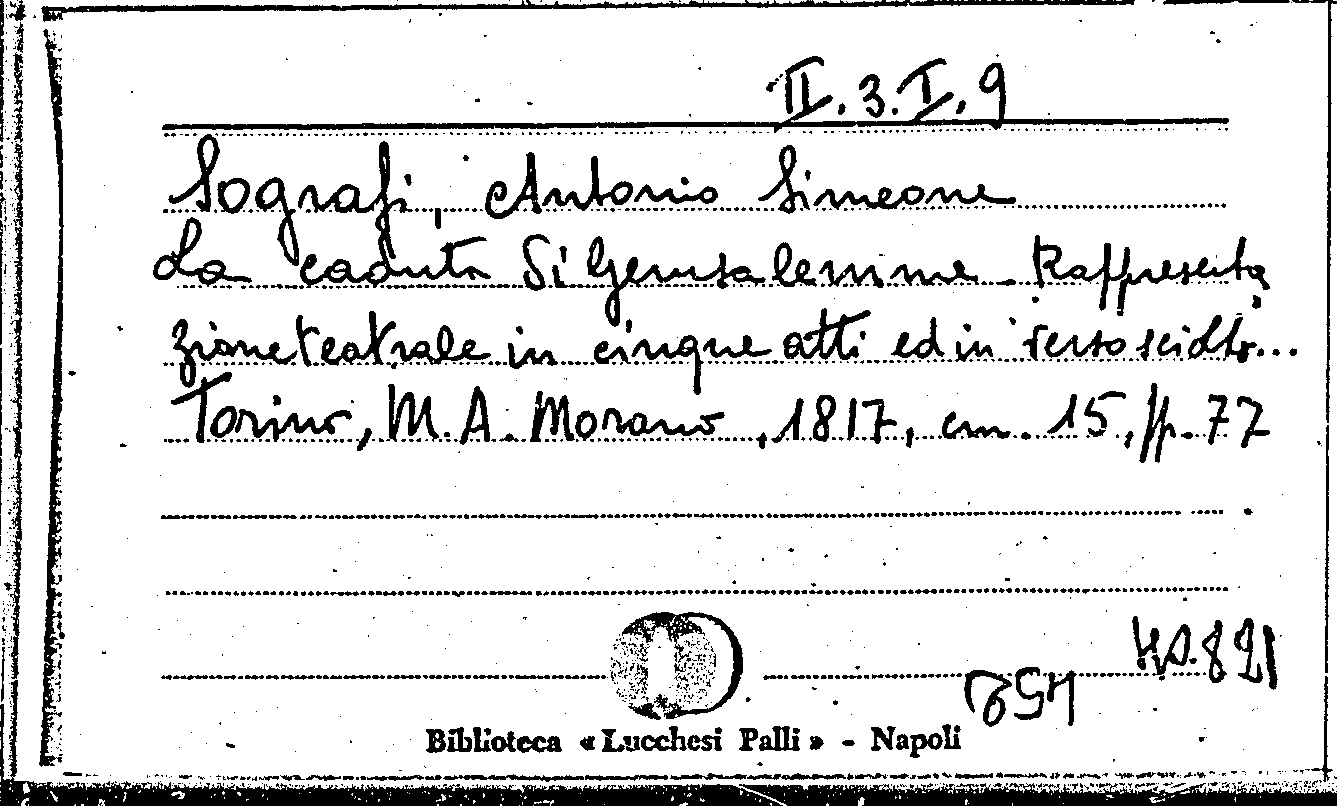 II.3.I.9
Sografi, Antonio Simeone
La caduta di Gerusalemme. Rappresenta
zione teatrale in cinque atti ed in verso sciolto...
Torino, M.A. Morano, 1817, cm. 15, pp. 77
Biblioteca « Lucchesi Palli » - Napoli